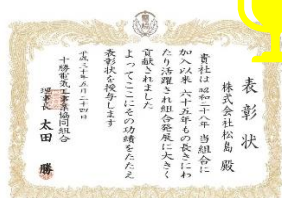 表彰状
株式会社松島 殿
貴社は昭和二十八年当組合に
加入以来六十五年もの長きにわ
たり活躍され組合発展に大きく
貢献されました
よってここにその功績をたたえ
表彰状を授与します
平成三十年五月二十四日
十勝電気工事業協同組合
理事長 太田 勝